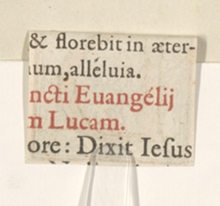 & florebit in æter-
num, alléluia.
ncti Euangélij
m Lucam.
ore: Dixit Iesus